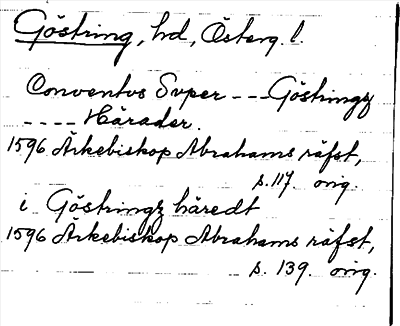 Göstring, hd, Österg. l.
Conventus Super - - - Göstringz
- - - - Härader.
1596 Ärkebiskop Abrahams räfst,
s. 117. orig.
i Göstringz häredt
1596 Ärkebiskop Abrahams räfst,
s. 139. orig.